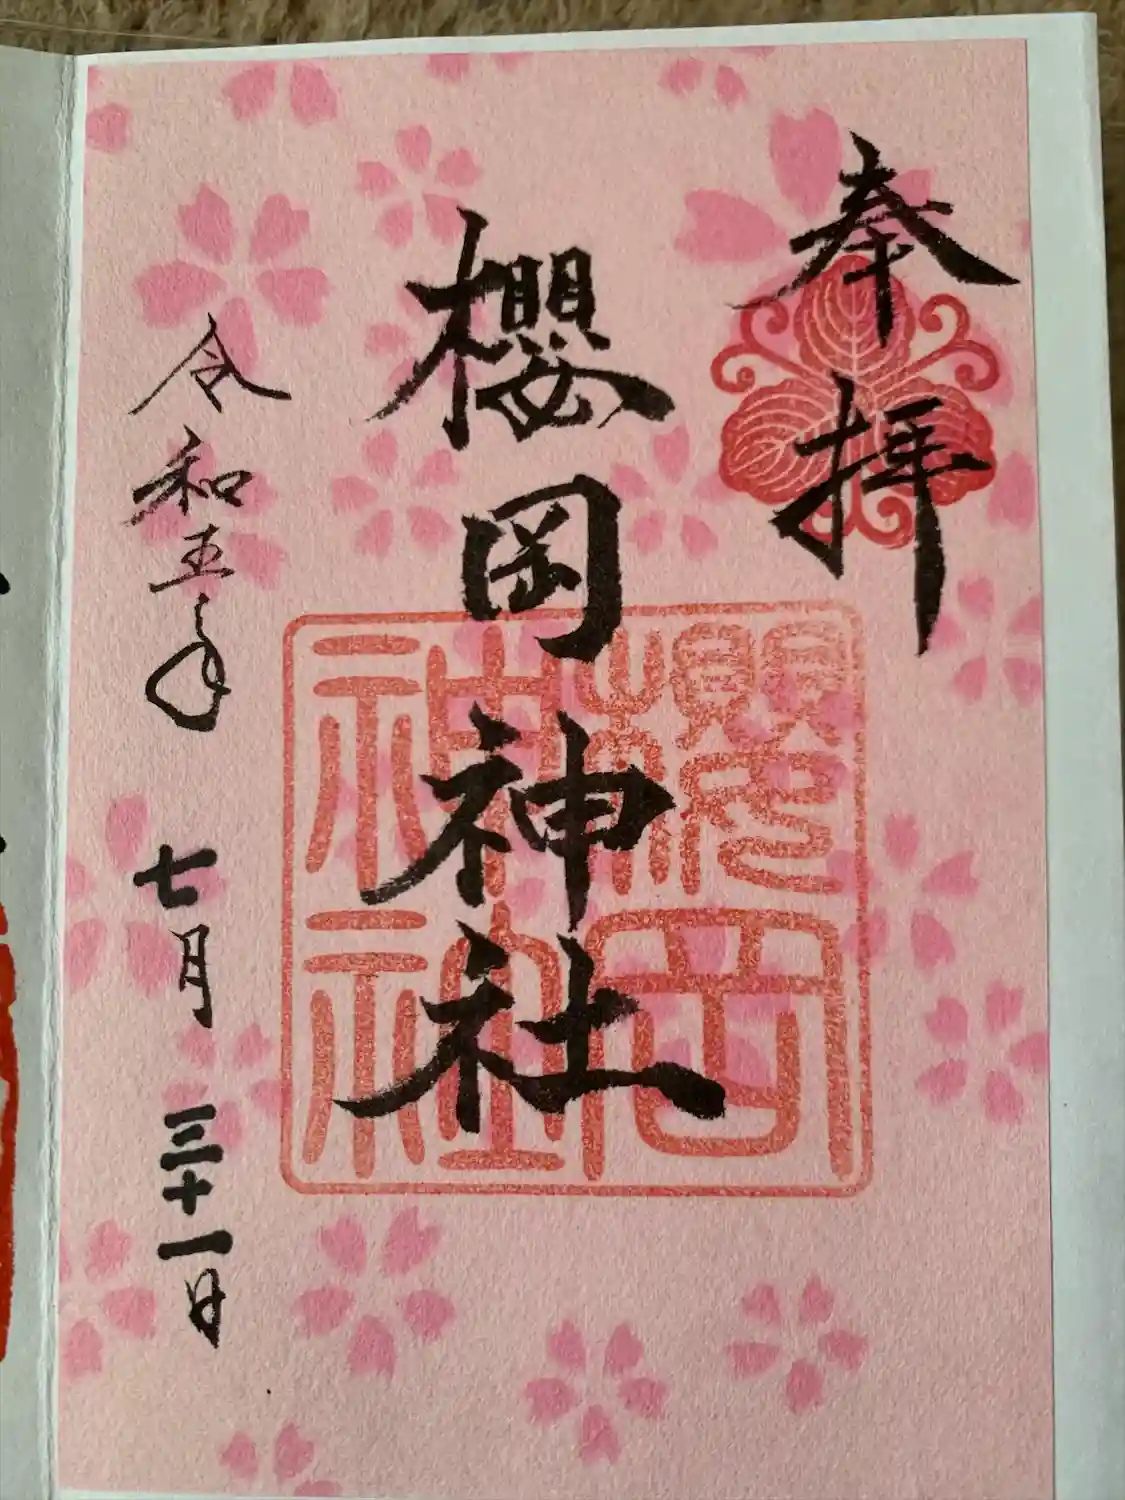 奉拝
櫻岡神社
櫻岡神社
令和五年 七月 三十一日